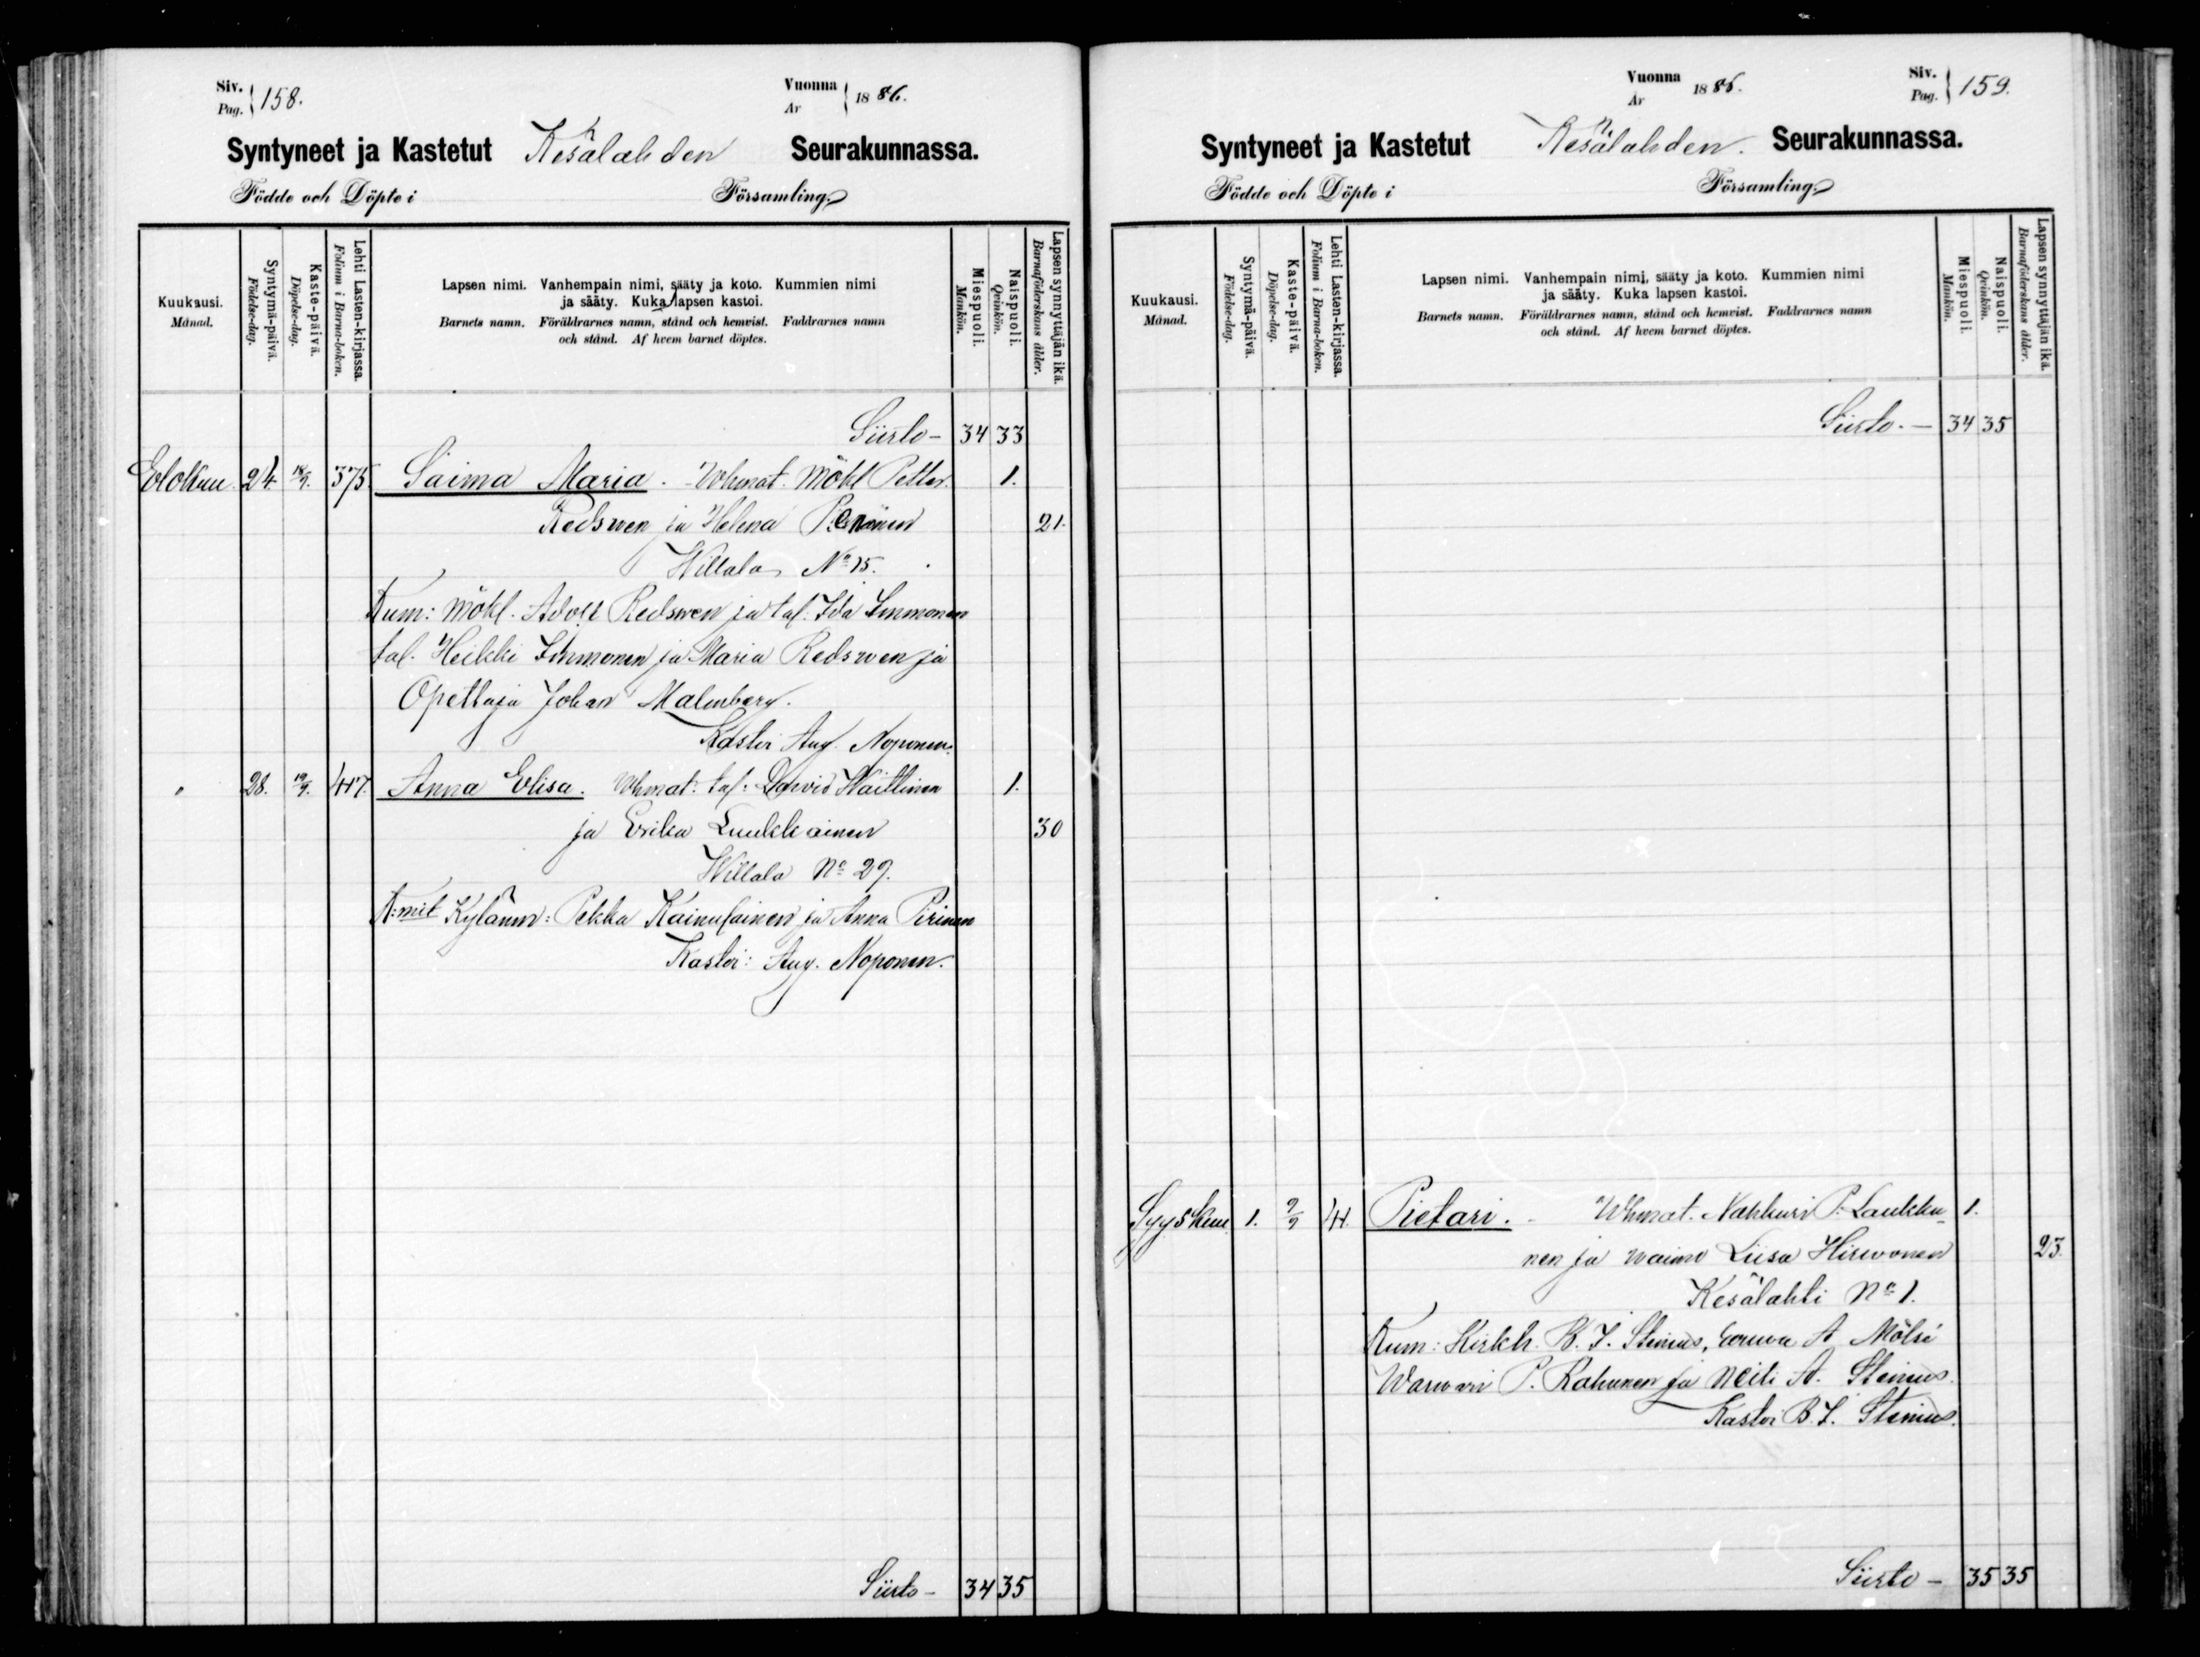 Siv. Pag. 158.
Vuonna År 1886.
Syntyneet ja Kastetut Kesälahden Seurakunnassa.
Födde och Döpte i Församling.
Kuukausi. Månad.
Syntymä-päivä. Födelse-dag.
Kaste-päivä. Döpelse-dag.
Lehti Lasten-kirjassa. Folium i Barna-boken.
Lapsen nimi. Vanhempain nimi, sääty ja koto. Kummien nimi
ja sääty. Kuka lapsen kastoi.
Barnets namn. Föräldrarnes namn, stånd och hemvist. Faddrarnes namn
och stånd. Af hvem barnet döptes.
Miespuoli. Mankön.
Naispuoli. Qvinkön.
Lapsen synnyttäjän ikä. Barnaföderskans ålder.
Siirto - 34 33
Elokuu 24. 18/9. 375. Saima Maria. Whmat. Mökl Petter 1.
Redswen ja Helena 21.
Willala No 15.
Kum: Mökl. Adolf Redswen ja tal. Ida Immonen
tal. Heikki Immonen ja Maria Redswen ja
Opettaja Johan Malmberg.
Kastoi Aug. Noponen.
" 28. 19/9. 417. Anna Elisa. Whmat: tal: David Waittinen 1.
ja Erika Luukkainen 30
Willala No 29.
K:mit Kylänm: Pekka Kainulainen ja Anna Pirinen
Kastoi: Aug. Noponen.
Siirto - 34 35
Vuonna År 1886.
Siv. Pag. 159.
Syntyneet ja Kastetut Kesälahden. Seurakunnassa.
Födde och Döpte i Församling.
Kuukausi. Månad.
Syntymä-päivä. Födelse-dag.
Kaste-päivä. Döpelse-dag.
Lehti Lasten-kirjassa. Folium i Barna-boken.
Lapsen nimi. Vanhempain nimi, sääty ja koto. Kummien nimi
ja sääty. Kuka lapsen kastoi.
Barnets namn. Föräldrarnes namn, stånd och hemvist. Faddrarnes namn
och stånd. Af hvem barnet döptes.
Miespuoli. Mankön.
Naispuoli. Qvinkön.
Lapsen synnyttäjän ikä. Barnaföderskans ålder.
Siirto. - 34 35
Syyskuu 1. 9/9 41. Pietari. Whmat. Nahkuri P. Laukka- 1.
nen ja waimo Liisa Hirwonen 23.
Kesälahti No 1.
Kum: Kirkh. B. I. Stenius, A. Mölsi
Warwari P. Rahunen ja Neiti A. Stenius.
Kastoi B. I. Stenius.
Siirto - 35 35